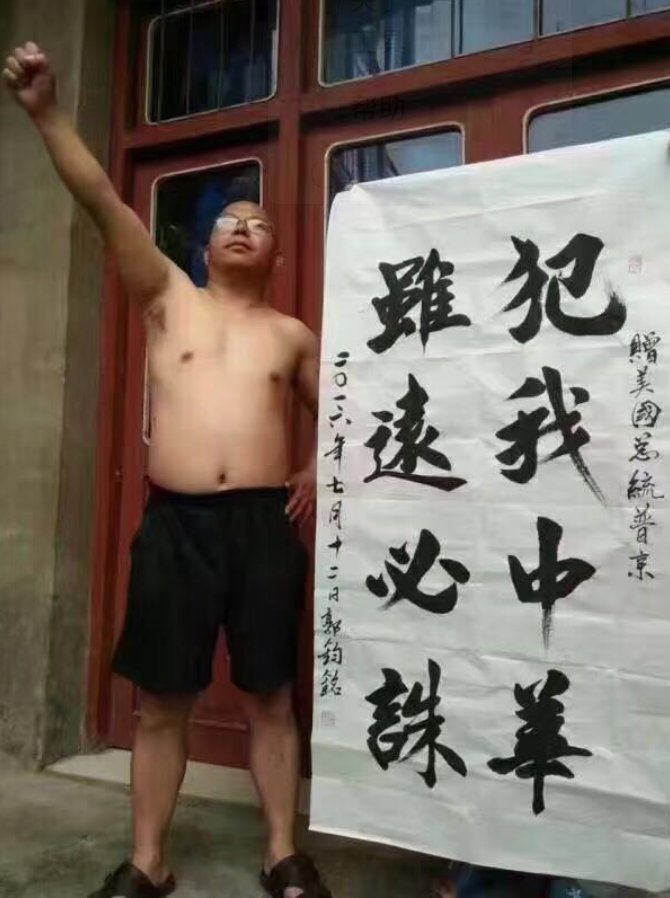 帮助
贈美國总統普京
犯我中華
雖遠必誅
二〇一六年七月十二日郭鈞銘